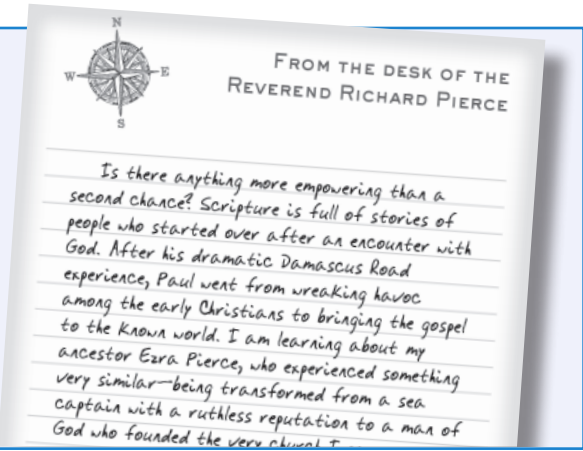 N
W E
S
FROM THE DESK OF THE
REVEREND RICHARD PIERCE
Is there anything more empowering than a
second chance? Scripture is full of stories of
people who started over after an encounter with
God. After his dramatic Damascus Road
experience, Paul went from wreaking havoc
among the early Christians to bringing the gospel
to the known world. I am learning about my
ancestor Ezra Pierce, who experienced something
very similar—being transformed from a sea
captain with a ruthless reputation to a man of
God who founded the very church I